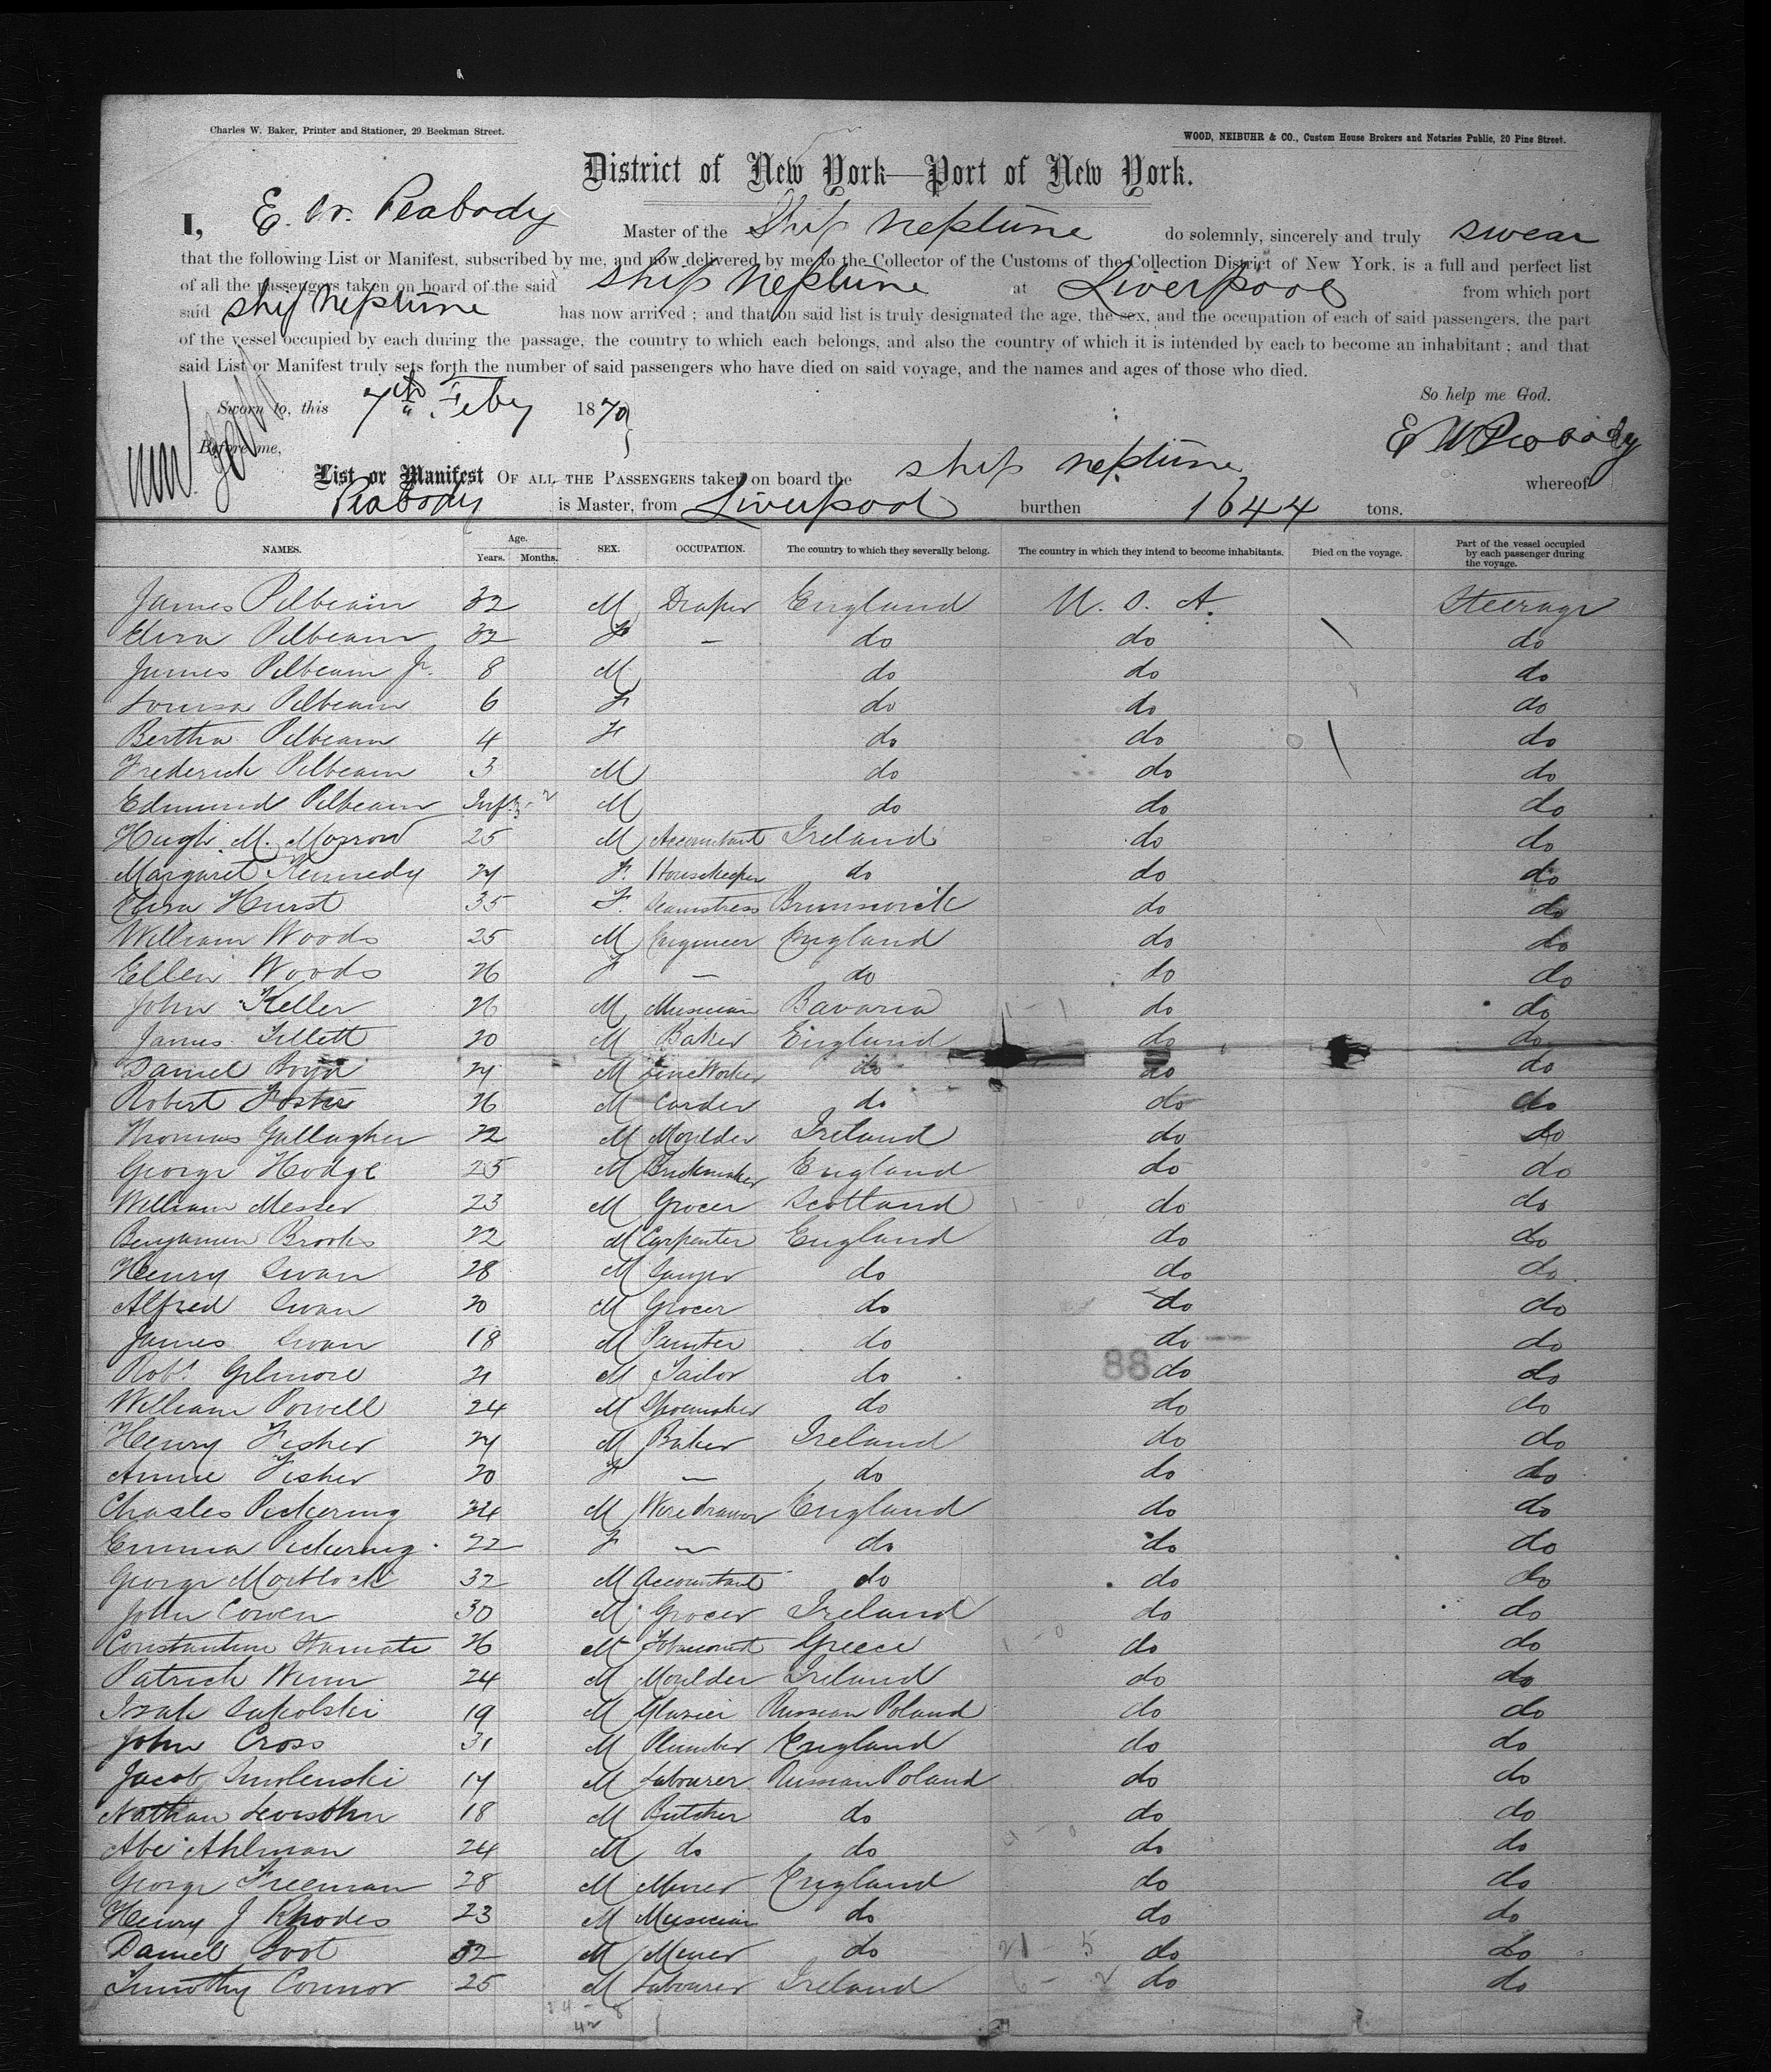 Charles W. Baker, Printer and Stationer, 29 Beekman Street. WOOD, NEIBUHR & CO., Custom House Brokers and Notaries Public, 20 Pine Street.
District of New York—Port of New York.
I, E. W. Peabody Master of the Ship Neptune do solemnly, sincerely and truly swear
that the following List or Manifest, subscribed by me, and now delivered by me to the Collector of the Customs of the Collection District of New York, is a full and perfect list
of all the passengers taken on board of the said ship Neptune at Liverpool from which port
said ship Neptune has now arrived; and that on said list is truly designated the age, the sex, and the occupation of each of said passengers, the part
of the vessel occupied by each during the passage, the country to which each belongs, and also the country of which it is intended by each to become an inhabitant; and that
said List or Manifest truly sets forth the number of said passengers who have died on said voyage, and the names and ages of those who died.
So help me God.
Sworn to, this 7th Feby 1870
E W Peabody
Before me,
List or Manifest OF ALL THE PASSENGERS taken on board the ship Neptune whereof
Peabody is Master, from Liverpool burthen 1644 tons.
NAMES. Age. Years. Months. SEX. OCCUPATION. The country to which they severally belong. The country in which they intend to become inhabitants. Died on the voyage. Part of the vessel occupied by each passenger during the voyage.
James Pilbeam 32 M Draper England U. S. A. Steerage
Eliza Pilbeam 32 F — do do do
James Pilbeam Jr. 8 M do do do
Louisa Pilbeam 6 F do do do
Bertha Pilbeam 4 F do do do
Frederick Pilbeam 3 M do do do
Edmund Pilbeam Inft M do do do
Hugh M. Morrow 25 M Accountant Ireland do do
Margaret Kennedy 21 F. Housekeeper do do do
Eliza Hurst 35 F. Seamstress Brunswick do do
William Woods 25 M Engineer England do do
Ellen Woods 26 F — do do do
John Keller 26 M Musician Bavaria do do
James Tillett 20 M Baker England do do
Daniel Boyd 21 M do do do
Robert Foster 26 M Carder do do do
Thomas Gallagher 22 M Moulder Ireland do do
George Hodge 25 M Brickmaker England do do
William Messer 23 M Grocer Scotland do do
Benjamin Brooks 22 M Carpenter England do do
Henry Swan 28 M Sawyer do do do
Alfred Swan 20 M Grocer do do do
James Swan 18 M Painter do do do
Robt. Gilmore 21 M Tailor do 88 do do
William Powell 24 M Shoemaker do do do
Henry Fisher 21 M Baker Ireland do do
Annie Fisher 20 F — do do do
Charles Pickering 24 M Wiredrawer England do do
Emma Pickering 22 F — do do do
George Mortlock 32 M Accountant do do do
John Cowen 30 M Grocer Ireland do do
Constantine Stamate 26 M Tobacconist Greece do do
Patrick Winn 24 M Moulder Ireland do do
Isaak Sakolski 19 M Glazier Russian Poland do do
John Cross 31 M Plumber England do do
Jacob Smolenski 17 M Labourer Russian Poland do do
Nathan Levisohn 18 M Butcher do do do
Abe Ahlman 24 M do do do do
George Freeman 28 M Miner England do do
Henry J Rhodes 23 M Musician do do do
Daniel Boot 32 M Miner do do do
Timothy Connor 25 M Labourer Ireland do do
34 - 8
42